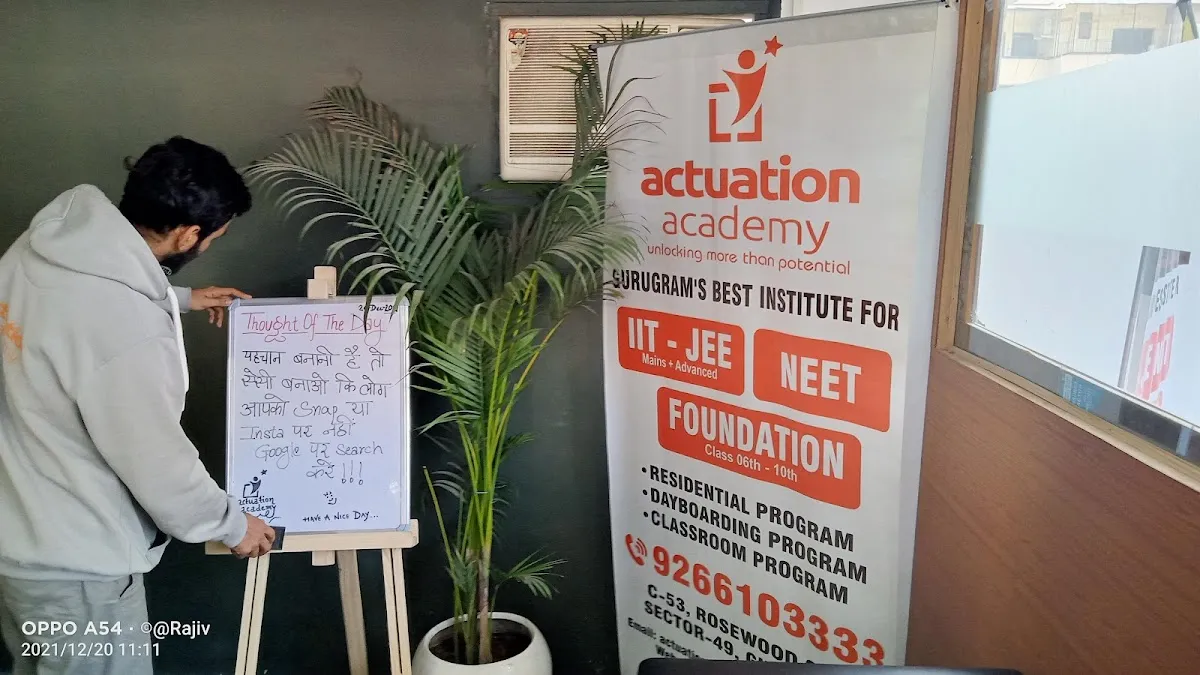 Thought Of The Day
पहचान बनानी है तो
ऐसी बनाओ कि लोग
आपको Snap या
Insta पर नहीं
Google पर Search
करें !!!
actuation
academy
HAVE A NICE DAY...
actuation
academy
unlocking more than potential
GURUGRAM'S BEST INSTITUTE FOR
IIT - JEE
Mains + Advanced
NEET
FOUNDATION
Class 06th - 10th
• RESIDENTIAL PROGRAM
• DAYBOARDING PROGRAM
• CLASSROOM PROGRAM
9266103333
C-53, ROSEWOOD
SECTOR-49,
Email:
OPPO A54 · ©@Rajiv
2021/12/20 11:11